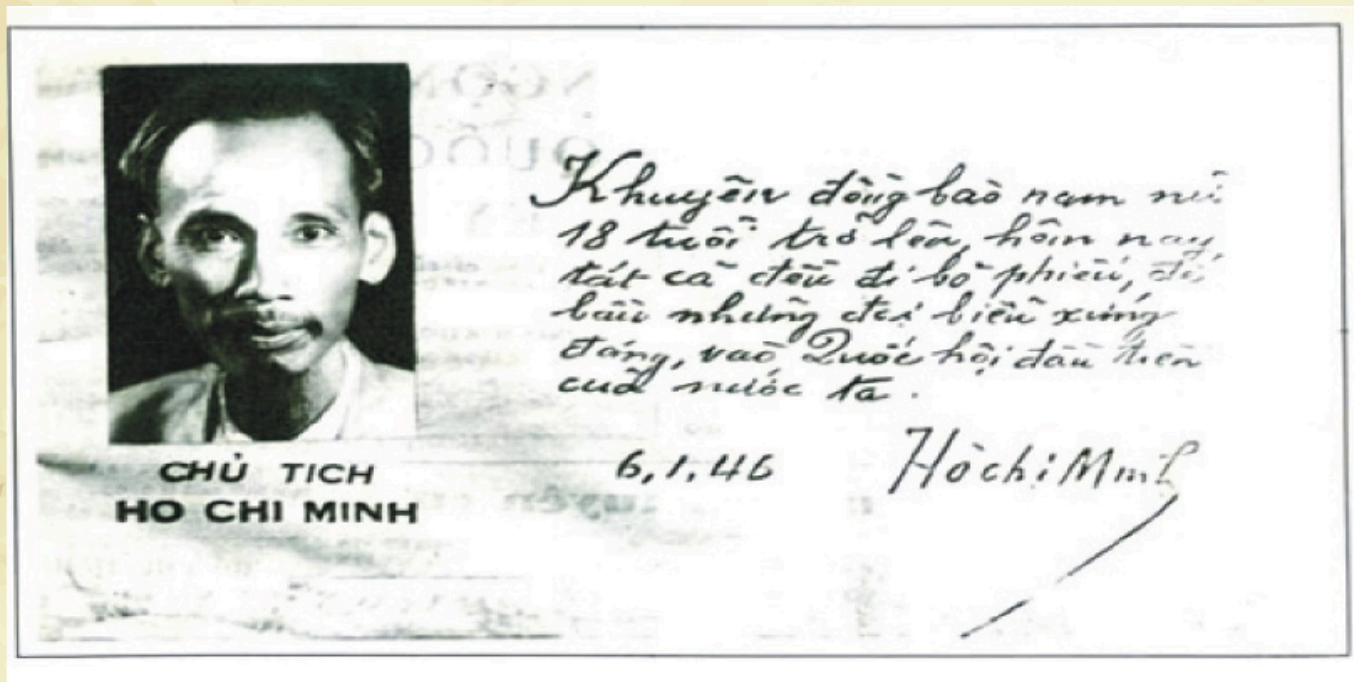 CHỦ TICH
HO CHI MINH
Khuyên đồng bào nam nữ
18 tuổi trở lên, hôm nay,
tất cả đều đi bỏ phiếu, để
bầu những đại biểu xứng
đáng, vào Quốc hội đầu tiên
của nước ta.
6.1.46
Hồ chí Minh